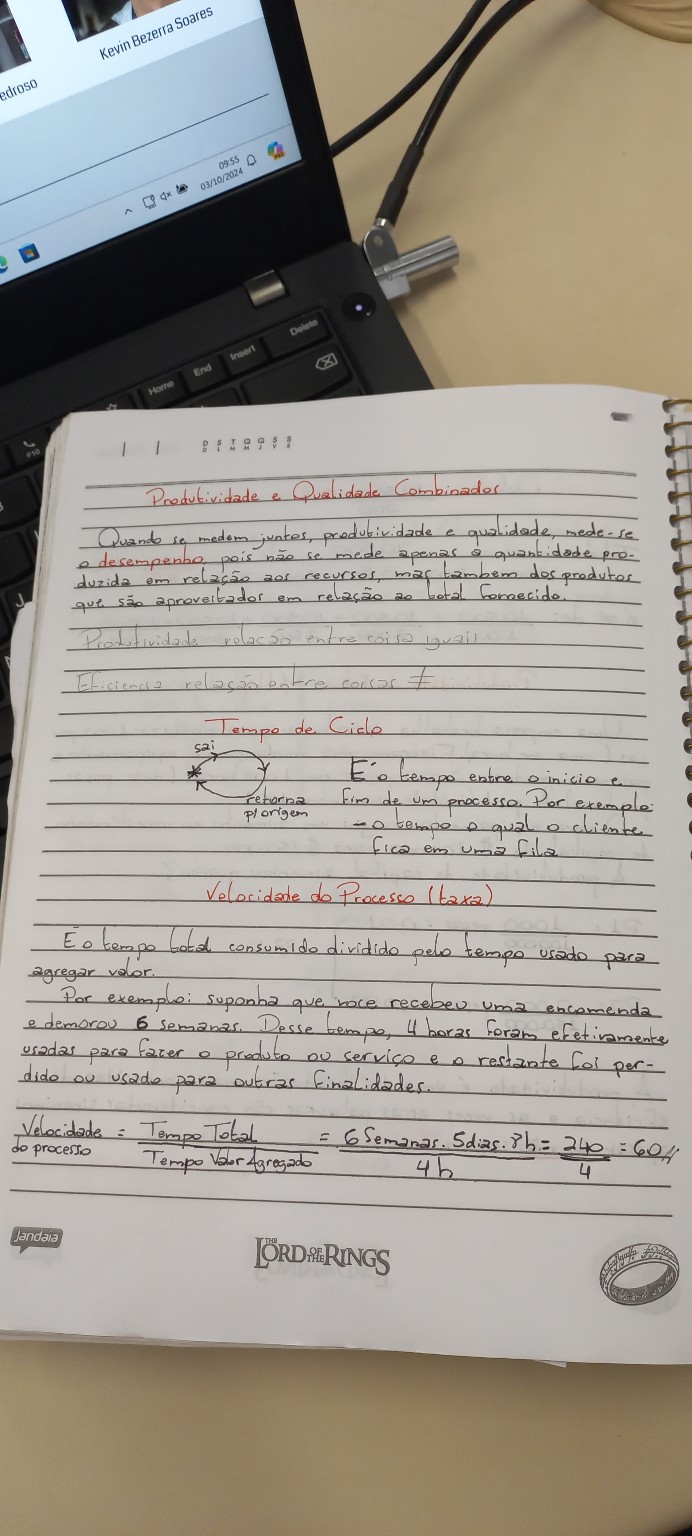 edroso
Kevin Bezerra Soares
09:55
03/10/2024
Delete
Insert
End
Home
F10
D S T Q Q S S
D L M M J V S
Produtividade e Qualidade Combinados
Quando se medem juntos, produtividade e qualidade, mede-se
o desempenho, pois não se mede apenas a quantidade pro-
duzida em relação aos recursos, mas tambem dos produtos
que são aproveitados em relação ao total fornecido.
Produtividade relação entre coisa iguais
Eficiencia relação entre coisas ≠
Tempo de Ciclo
sai
retorna
p/ origem
É o tempo entre o inicio e
fim de um processo. Por exemplo:
- o tempo o qual o cliente
fica em uma fila
Velocidade do Processo (taxa)
É o tempo total consumido dividido pelo tempo usado para
agregar valor.
Por exemplo: suponha que voce recebeu uma encomenda
e demorou 6 semanas. Desse tempo, 4 horas foram efetivamente
usadas para fazer o produto ou serviço e o restante foi per-
dido ou usado para outras finalidades.
Velocidade do processo = Tempo Total / Tempo Valor Agregado = 6 Semanas . 5 dias . 8h / 4h = 240 / 4 = 60//
Jandaia
THE LORD OF THE RINGS